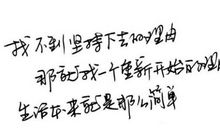 找不到坚持下去的理由
那就找一个重新开始的理
生活本来就是那么简单